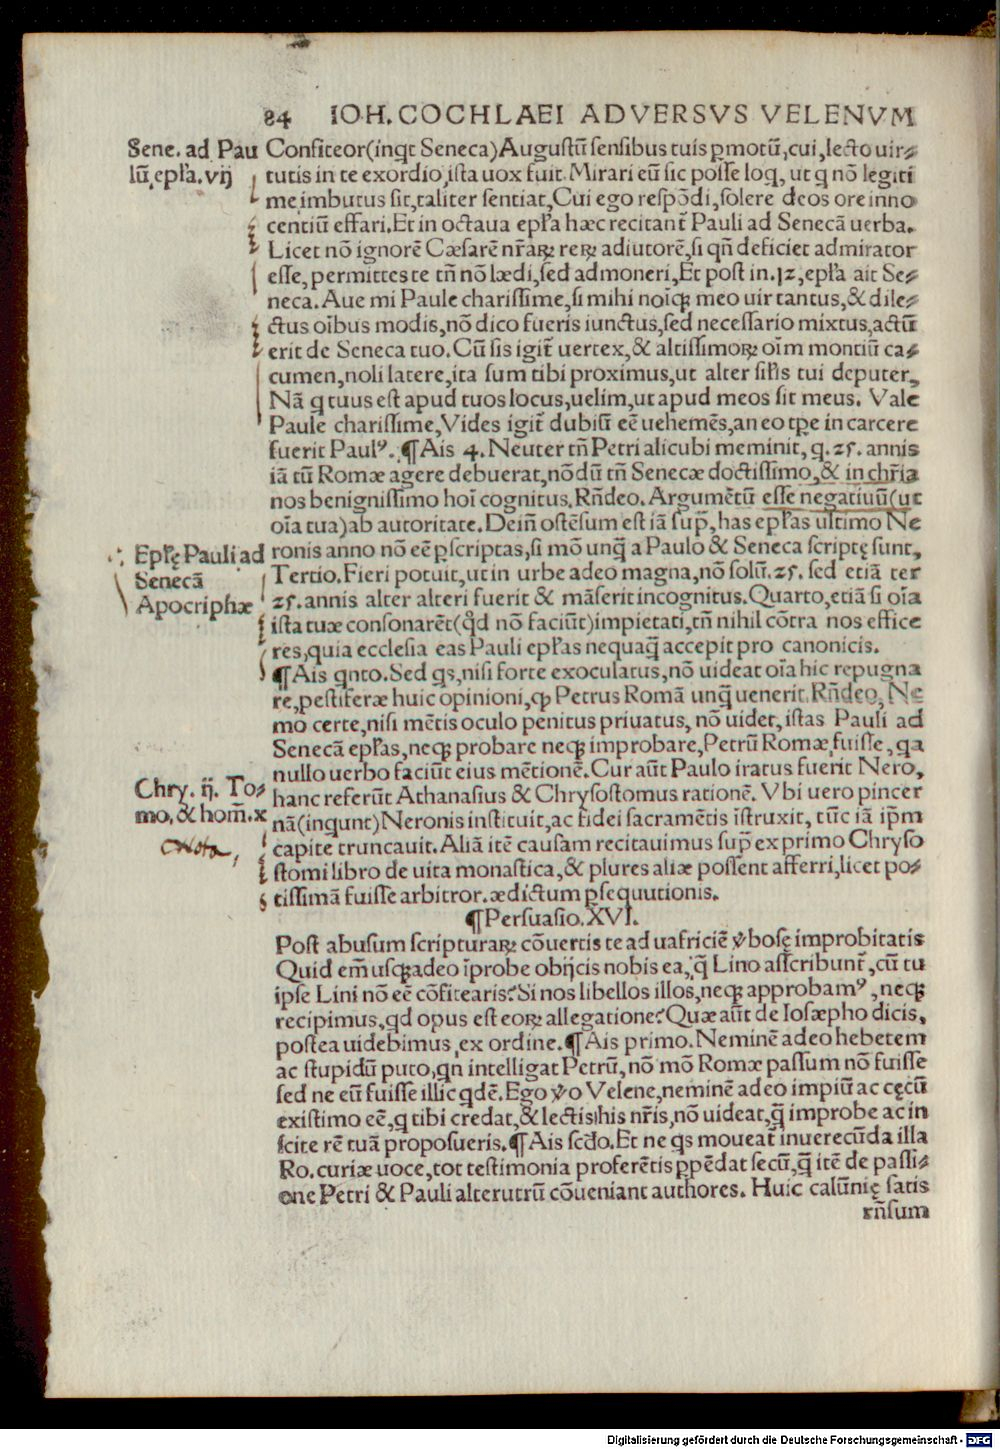 84 IOH. COCHLAEI ADVERSVS VELENVM
Sene. ad Pau
lū, epła. vij
Confiteor (inqt Seneca) Augustū sensibus tuis pmotū, cui, lecto uir⸗
tutis in te exordio, ista uox fuit. Mirari eū sic posse loq, ut q nō legiti
me imbutus sit, taliter sentiat, Cui ego respōdi, solere deos ore inno
centiū effari. Et in octaua epła hæc recitant̄ Pauli ad Senecā uerba.
Licet nō ignorē Cæsarē nr̄aꝝ reꝝ adiutorē, si qn̄ deficiet admirator
esse, permittes te tn̄ nō lædi, sed admoneri, Et post in. 12, epła ait Se⸗
neca. Aue mi Paule charissime, si mihi noīqꝫ meo uir tantus, & dile⸗
ctus oībus modis, nō dico fueris iunctus, sed necessario mixtus, actū
erit de Seneca tuo. Cū sis igit̄ uertex, & altissimoꝝ oīm montiū ca⸗
cumen, noli latere, ita sum tibi proximus, ut alter siłis tui deputer,
Nā q tuus est apud tuos locus, uelim, ut apud meos sit meus. Vale
Paule charissime, Vides igit̄ dubiū eē uehemēs, an eo tpe in carcere
fuerit Paulꝰ. ¶ Ais 4. Neuter tn̄ Petri alicubi meminit, q. 25. annis
iā tū Romæ agere debuerat, nōdū tn̄ Senecæ doctissimo, & in chr̄ia
nos benignissimo hoī cognitus. Rn̄deo. Argumētū esse negatiuū (ut
oīa tua) ab autoritate. Dein̄ ostēsum est iā sup̄, has epłas ultimo Ne
ronis anno nō eē pscriptas, si mō unq̄ a Paulo & Seneca scriptę sunt,
Eplę Pauli ad
Senecā
Apocriphæ
Tertio. Fieri potuit, ut in urbe adeo magna, nō solū. 25. sed etiā ter
25. annis alter alteri fuerit & māserit incognitus. Quarto, etiā si oīa
ista tuæ consonarēt (qd nō faciūt) impietati, tn̄ nihil cōtra nos effice
res, quia ecclesia eas Pauli epłas nequaq̄ accepit pro canonicis.
¶ Ais qnto. Sed qs, nisi forte exoculatus, nō uideat oīa hic repugna
re, pestiferæ huic opinioni, ꝙ Petrus Romā unq̄ uenerit. Rn̄deo, Ne
mo certe, nisi mētis oculo penitus priuatus, nō uidet, istas Pauli ad
Senecā epłas, neqꝫ probare neqꝫ improbare, Petrū Romæ fuisse, qa
nullo uerbo faciūt eius mētionē. Cur aūt Paulo iratus fuerit Nero,
Chry. ij. To⸗
mo, & hom̄. x
Nota,
hanc referūt Athanasius & Chrysostomus rationē. Vbi uero pincer
nā (inqunt) Neronis instituit, ac fidei sacramētis īstruxit, tūc iā ip̄m
capite truncauit. Aliā itē causam recitauimus sup̄ ex primo Chryso
stomi libro de uita monastica, & plures aliæ possent afferri, licet po⸗
tissimā fuisse arbitror. ædictum psequutionis.
¶ Persuasio. XVI.
Post abusum scripturaꝝ cōuertis te ad uafriciē ỽbosę improbitatis
Quid em̄ usqꝫ adeo īprobe obijcis nobis ea, q̄ Lino asscribunt̄, cū tu
ipse Lini nō eē cōfitearis? Si nos libellos illos, neqꝫ approbamꝰ, neqꝫ
recipimus, qd opus est eoꝝ allegatione? Quæ aūt de Iosæpho dicis,
postea uidebimus, ex ordine. ¶ Ais primo. Neminē adeo hebetem
ac stupidū puto, qn intelligat Petrū, nō mō Romæ passum nō fuisse
sed ne eū fuisse illic qdē. Ego ỽo Velene, neminē adeo impiū ac cęcū
existimo eē, q tibi credat, & lectis his nr̄is, nō uideat, q̄ improbe ac in
scite rē tuā proposueris. ¶ Ais scđo. Et ne qs moueat̄ inuerecūda illa
Ro. curiæ uoce, tot testimonia proferētis ppēdat secū, q̄ itē de passi⸗
one Petri & Pauli alterutrū cōueniant authores. Huic calūnię satis
rn̄sum
Digitalisierung gefördert durch die Deutsche Forschungsgemeinschaft - DFG